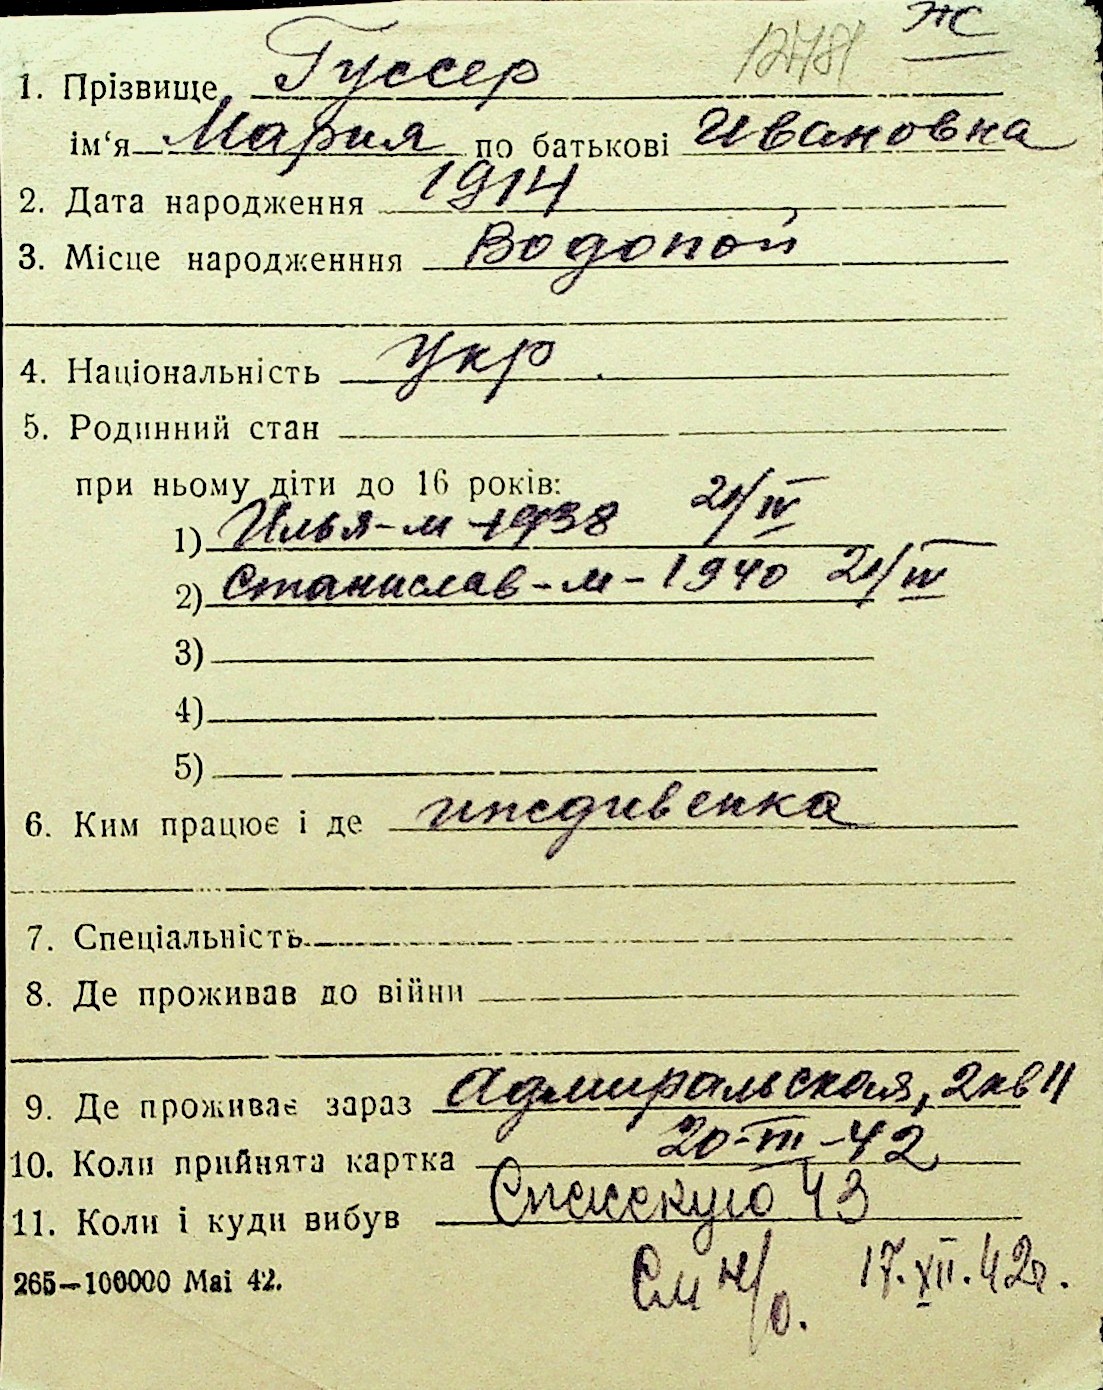 Ж
12781
1. Прізвище Гуссер
ім'я Мария по батькові Ивановна
2. Дата народження 1914
3. Місце народженння Водопой
4. Національність Укр
5. Родинний стан
при ньому діти до 16 років:
1) Илья-м-1938 21/IV
2) Станислав-м-1940 21/IV
3)
4)
5)
6. Ким працює і де иждивенка
7. Спеціальність
8. Де проживав до війни
9. Де проживає зараз Адмиральская, 2 кв 11
10. Коли прийнята картка 20-III-42
11. Коли і куди вибув Спасскую 43
См н/о. 17.XII.42г.
265—100000 Mai 42.